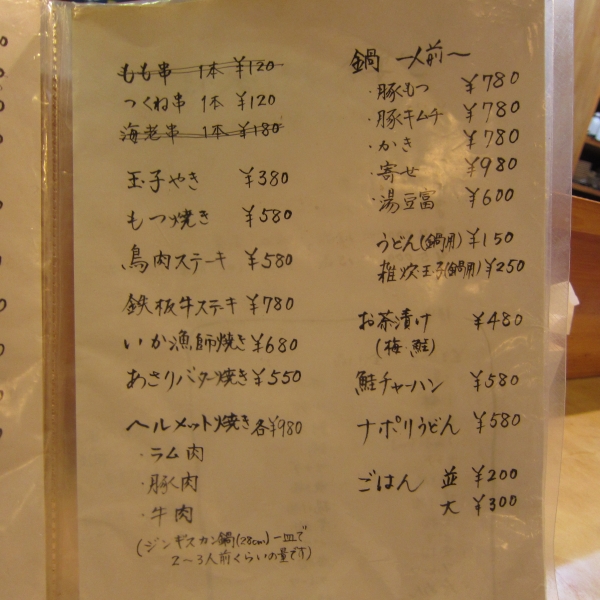 もも串 1本 ¥120
つくね串 1本 ¥120
海老串 1本 ¥180
玉子やき ¥380
もつ焼き ¥580
鳥肉ステーキ ¥580
鉄板牛ステキ ¥780
いか漁師焼き ¥680
あさりバター焼き ¥550
ヘルメット焼き 各¥980
・ラム肉
・豚肉
・牛肉
(ジンギスカン鍋(28cm)一皿で
2〜3人前くらいの量です)
鍋 一人前〜
・豚もつ ¥780
・豚キムチ ¥780
・かき ¥780
・寄せ ¥980
・湯豆富 ¥600
うどん(鍋用) ¥150
雑炊玉子(鍋用) ¥250
お茶漬け ¥480
(梅、鮭)
鮭チャーハン ¥580
ナポリうどん ¥580
ごはん 並 ¥200
大 ¥300